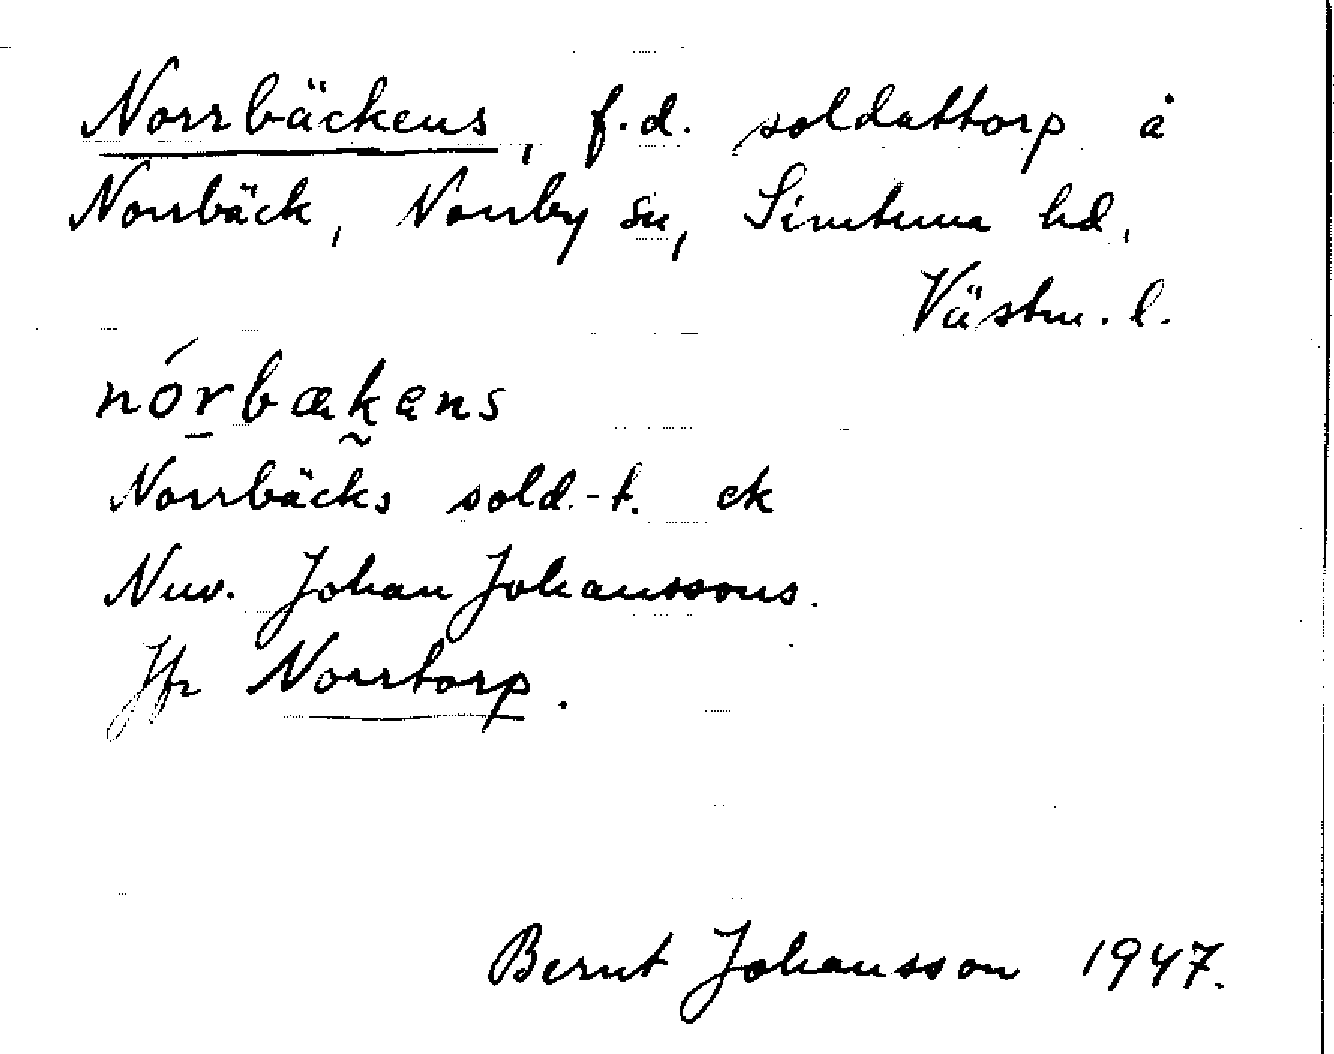 Norrbäckens, f.d. soldattorp å
Norrbäck, Norrby sn, Simtuna hd,
Västm. l.
nórbækens
Norrbäcks sold.-t. ek
Nuv. Johan Johanssons.
Jfr Norrtorp.
Bernt Johansson 1947.